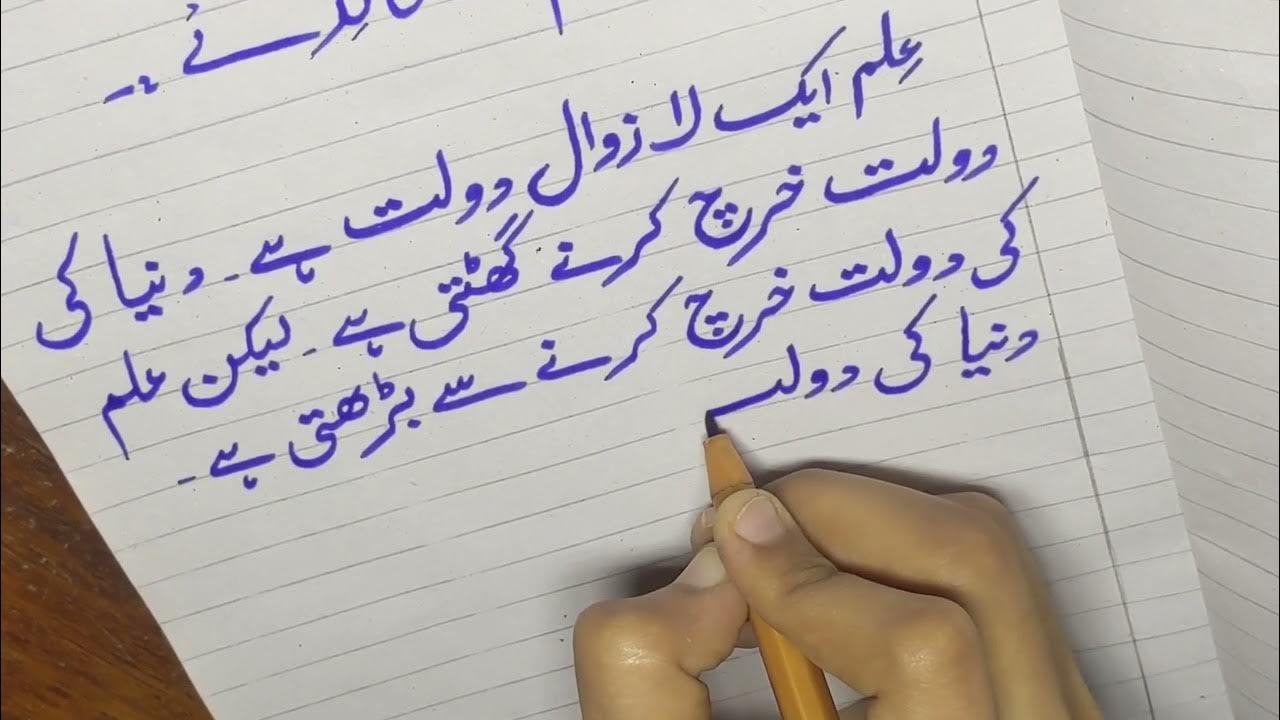 نے ۔
عِلم ایک لا زوال دولت ہے ۔ دنیا کی
دولت خرچ کرنے گھٹتی ہے ۔ لیکن علم
کی دولت خرچ کرنے سے بڑھتی ہے ۔
دنیا کی دولت